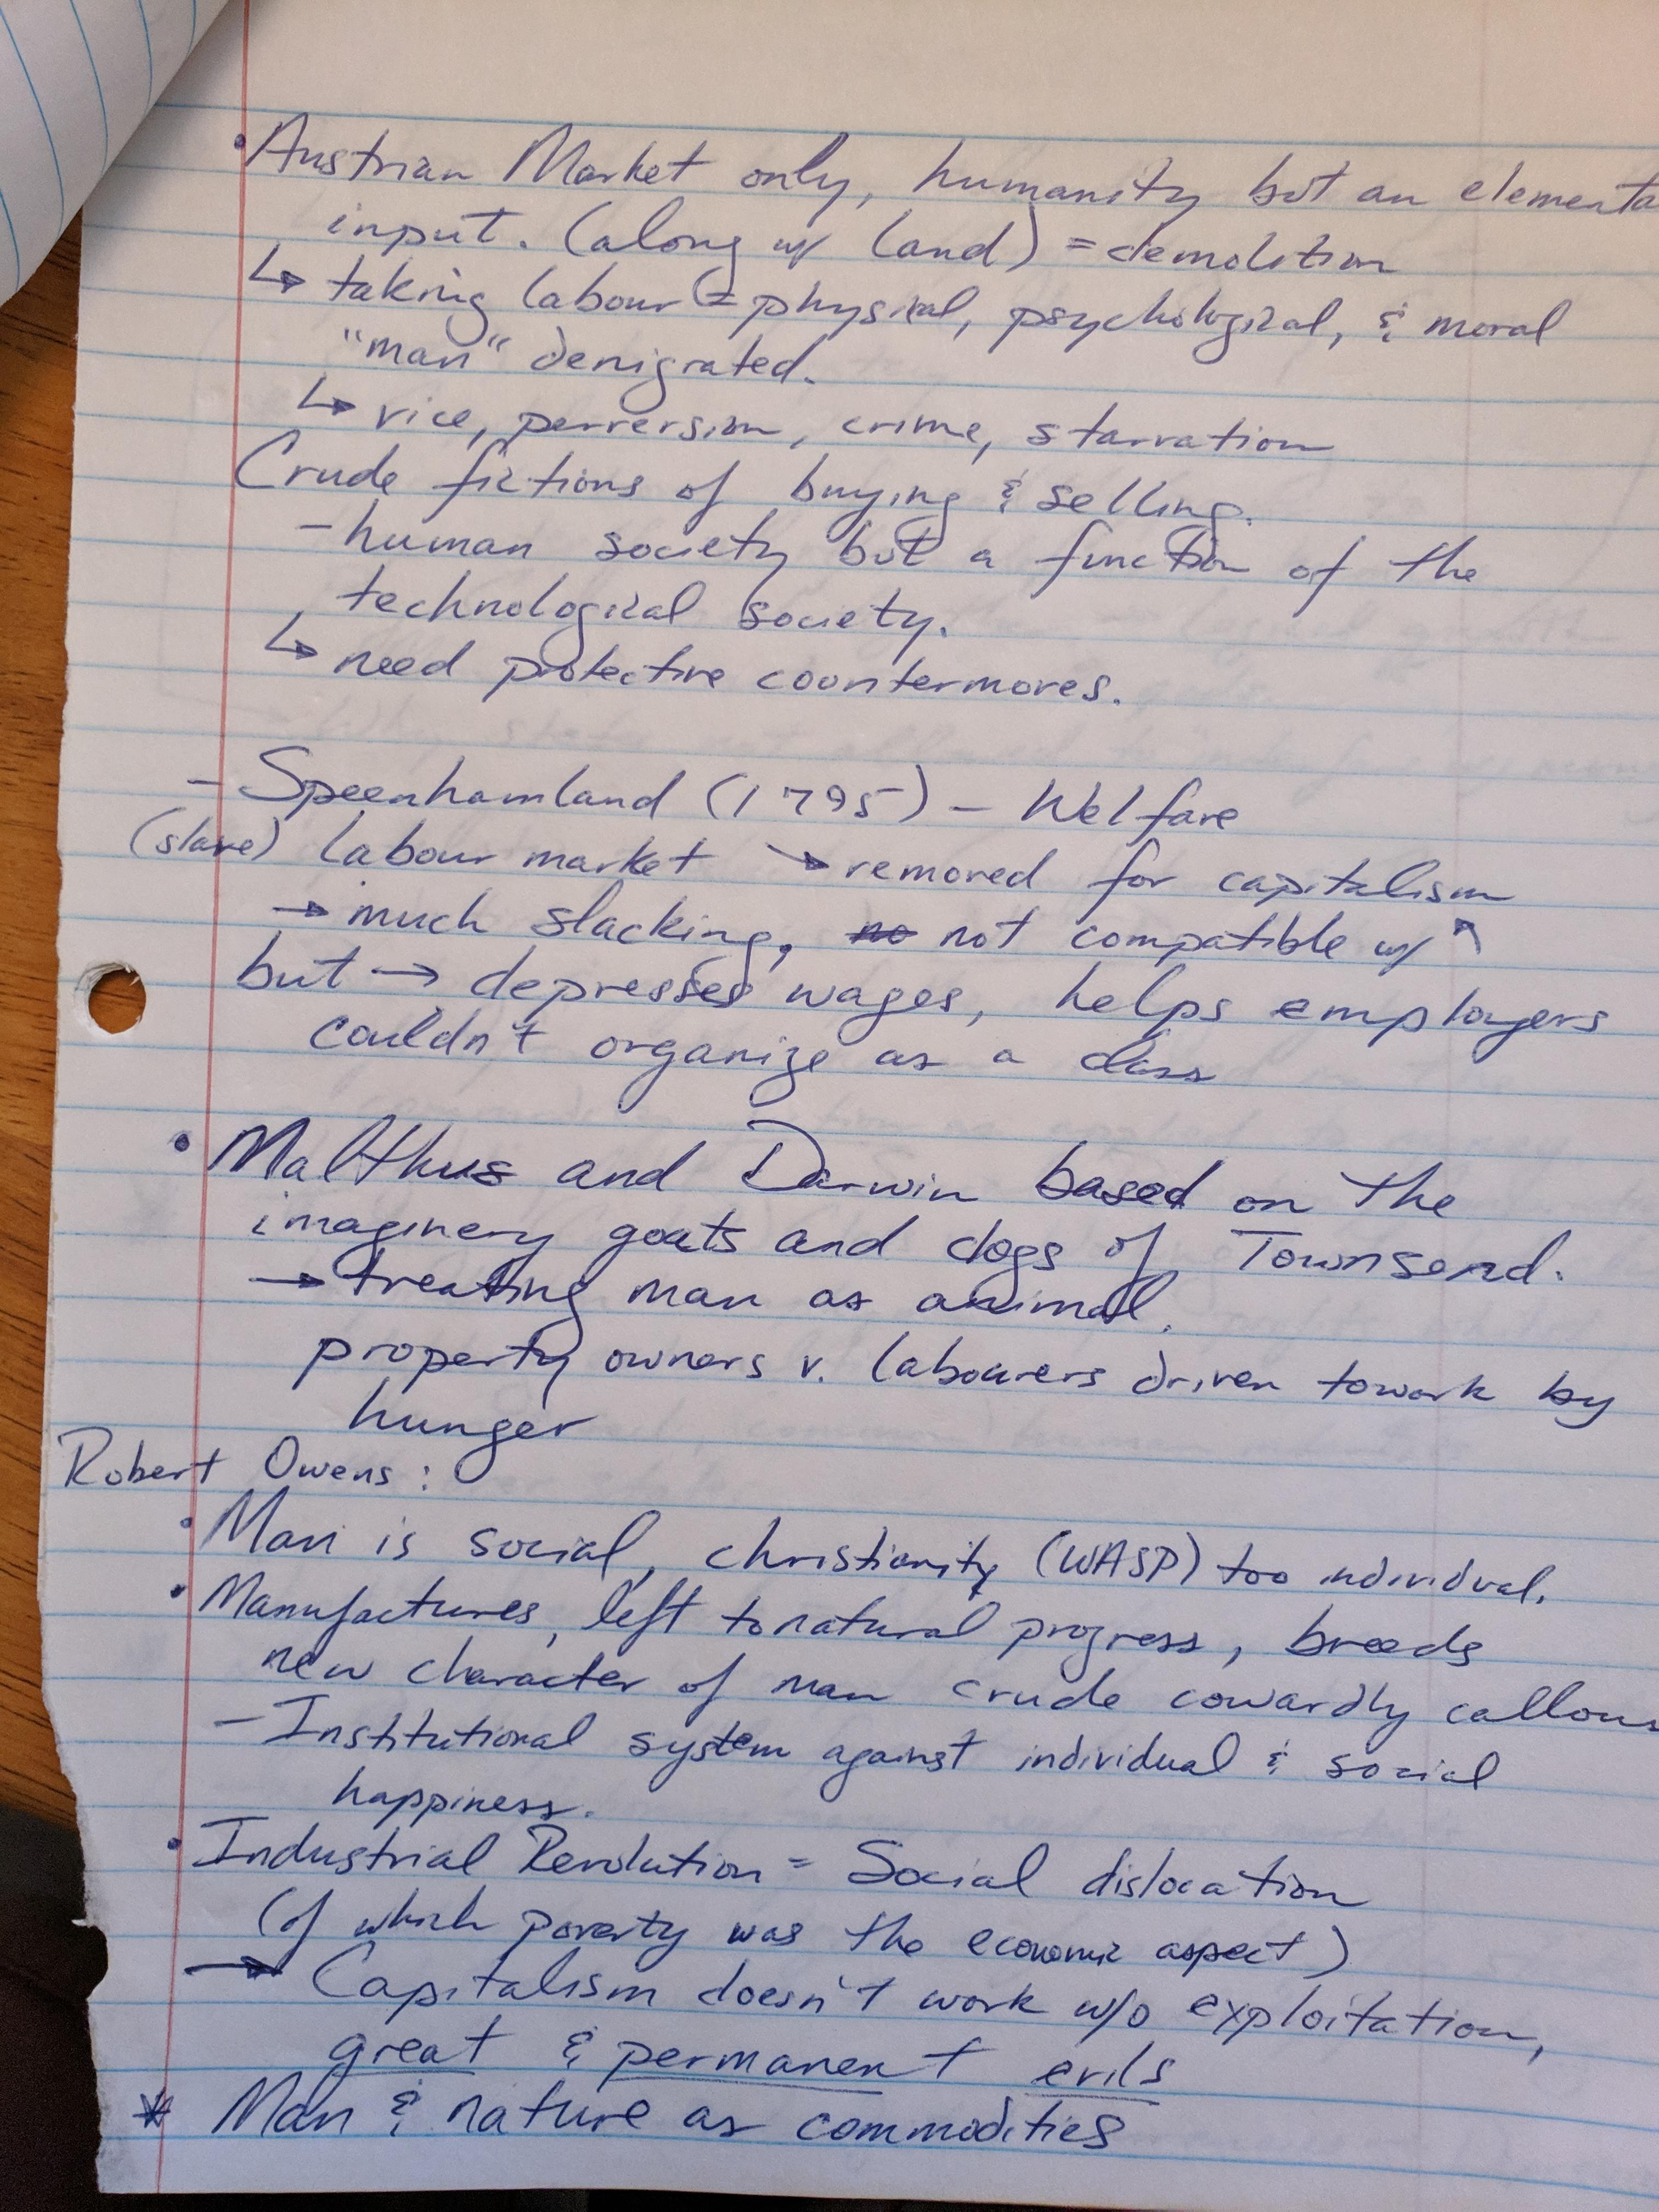 • Austrian Market only, humanity but an elementa
input. (along w/ land) = demolition
↳ taking labour = physical, psychological, & moral
"man" denigrated.
↳ vice, perversion, crime, starvation
Crude fictions of buying & selling.
- human society but a function of the
technological society.
↳ need protective countermoves.
- Speenhamland (1795) - Welfare
(slave) labour market ↘ removed for capitalism
→ much slacking, no not compatible w/ ↖
but → depresses wages, helps employers
couldn't organize as a class
• Malthus and Darwin based on the
imaginery goats and dogs of Townsend.
→ treating man as animal.
property owners v. labourers driven to work by
hunger
Robert Owens:
• Man is social, christianity (WASP) too individual.
• Manufactures, left to natural progress, breeds
new character of man crude cowardly callous
- Institutional system against individual & social
happiness.
• Industrial Revolution = Social dislocation
(of which poverty was the economic aspect)
→ Capitalism doesn't work w/o exploitation,
great & permanent evils
* Man & nature as commodities